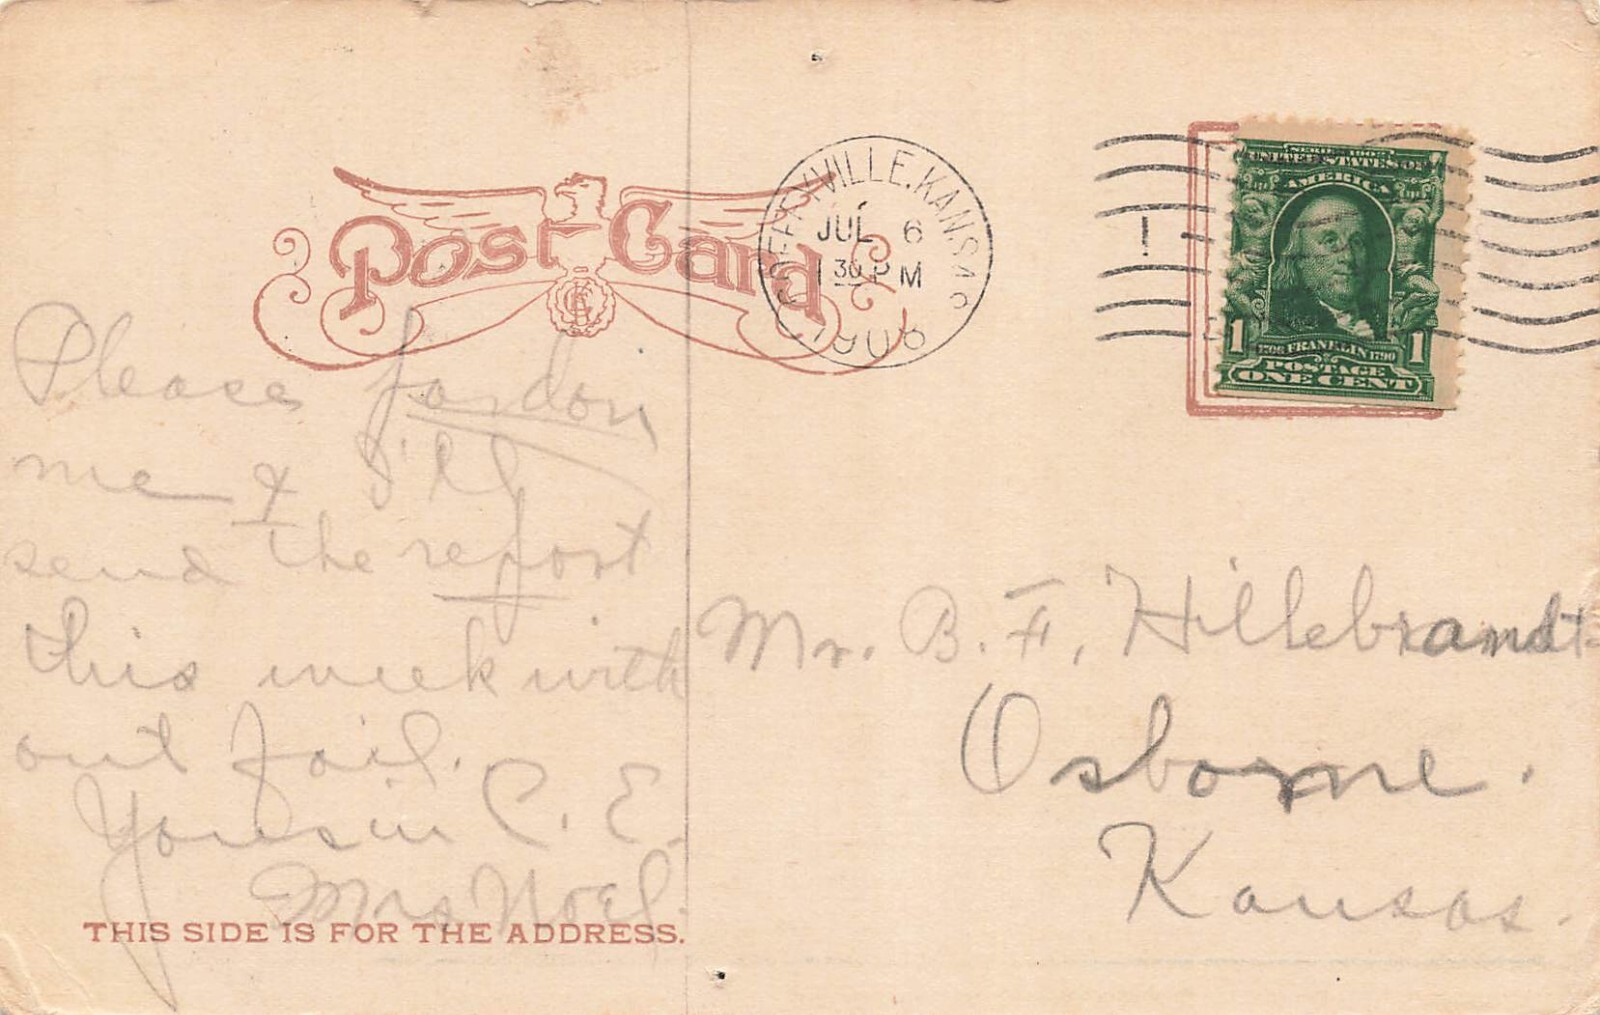 Post Card
COFFEYVILLE, KANS.
JUL 6
1 30 PM
1906
SERIES 1902
UNITED STATES OF
AMERICA
1 1
1706 FRANKLIN 1790
POSTAGE
ONE CENT
Please pardon
me & I'll
send the report
this week with
out fail.
Yours in C. E.
Mrs Noel.
Mr. B. F. Hillebrandt
Osborne.
Kansas.
THIS SIDE IS FOR THE ADDRESS.